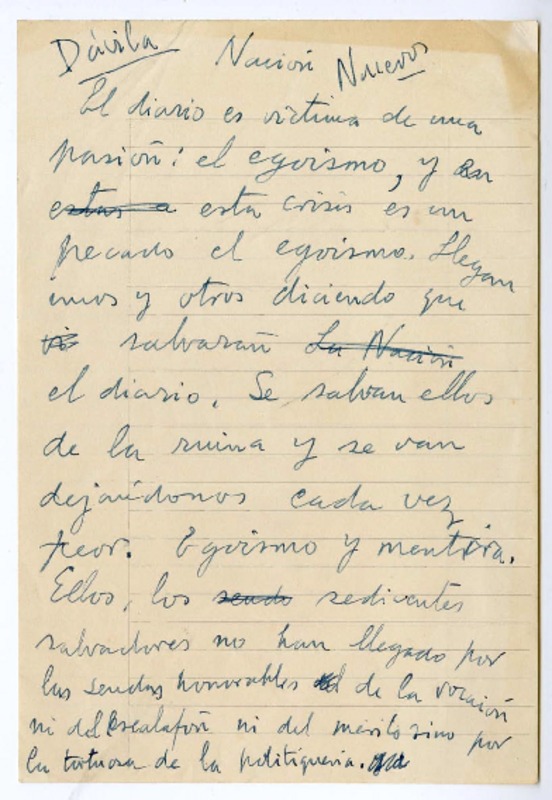 Dávila Nación Nuevos
El diario es víctima de una
pasión: el egoísmo, y en
estas a esta crisis es un
pecado el egoísmo. Llegan
unos y otros diciendo que
salvarán La Nación
el diario. Se salvan ellos
de la ruina y se van
dejándonos cada vez
peor. Egoísmo y mentira.
Ellos, los sendo sedicentes
salvadores no han llegado por
las sendas honorables de la vocación
ni del escalafón ni del mérito sino por
la tortuosa de la politiquería.